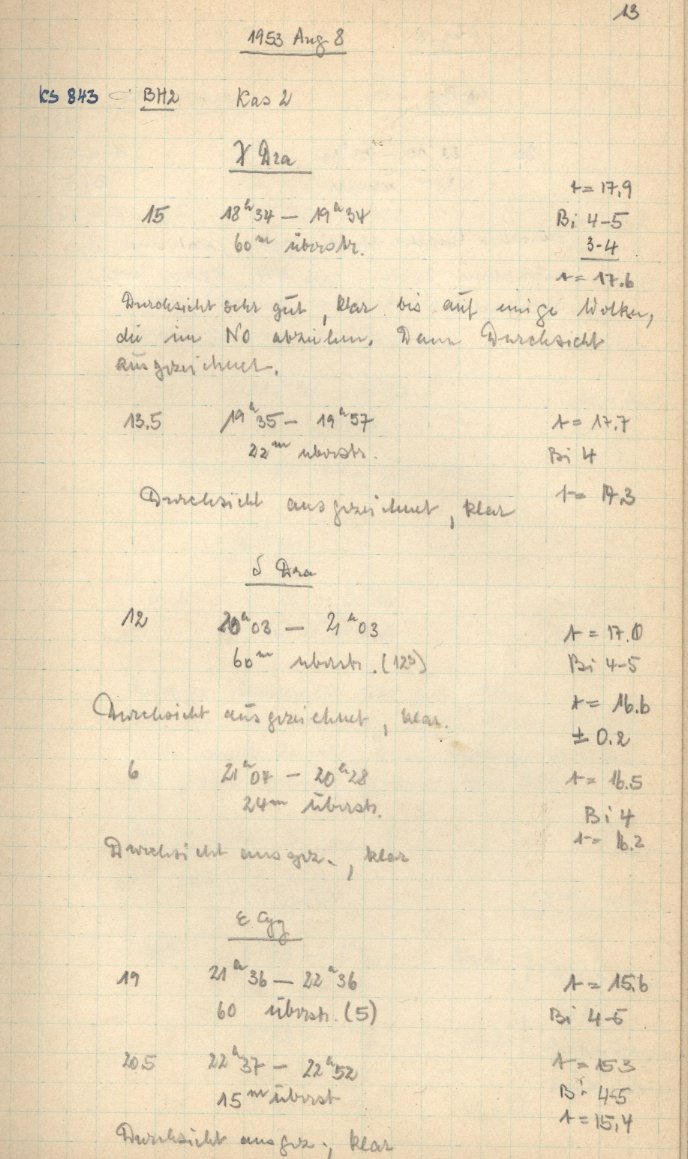 13
1953 Aug 8
KS 843 BH2 Kas 2
γ Dra
t = 17,9
15 18h34 — 19h34 Bi 4-5
60m überstr. 3-4
t = 17.6
Durchsicht sehr gut, klar bis auf einige Wolken,
die im NO abziehen. Dann Durchsicht
ausgezeichnet.
13,5 19h35 — 19h57 t = 17,7
22m überstr. Bi 4
Durchsicht ausgezeichnet, klar t = 17,3
δ Dra
12 20h03 — 21h03 t = 17.0
60m überstr. (12s) Bi 4-5
Durchsicht ausgezeichnet, klar. t = 16.6
± 0.2
6 21h07 — 20h28 t = 16.5
24m überstr. Bi 4
Durchsicht ausgez., klar t = 16.2
ε Cyg
19 21h36 — 22h36 t = 15.6
60 überstr. (5) Bi 4-5
20.5 22h37 — 22h52 t = 15.3
15m überstr Bi 4-5
t = 15,4
Durchsicht ausgez., klar